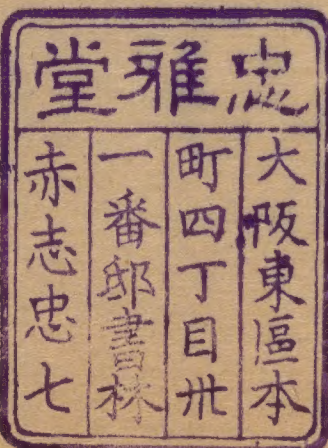 忠雅堂
大阪東區本
町四丁目卅
一番邸書林
赤志忠七